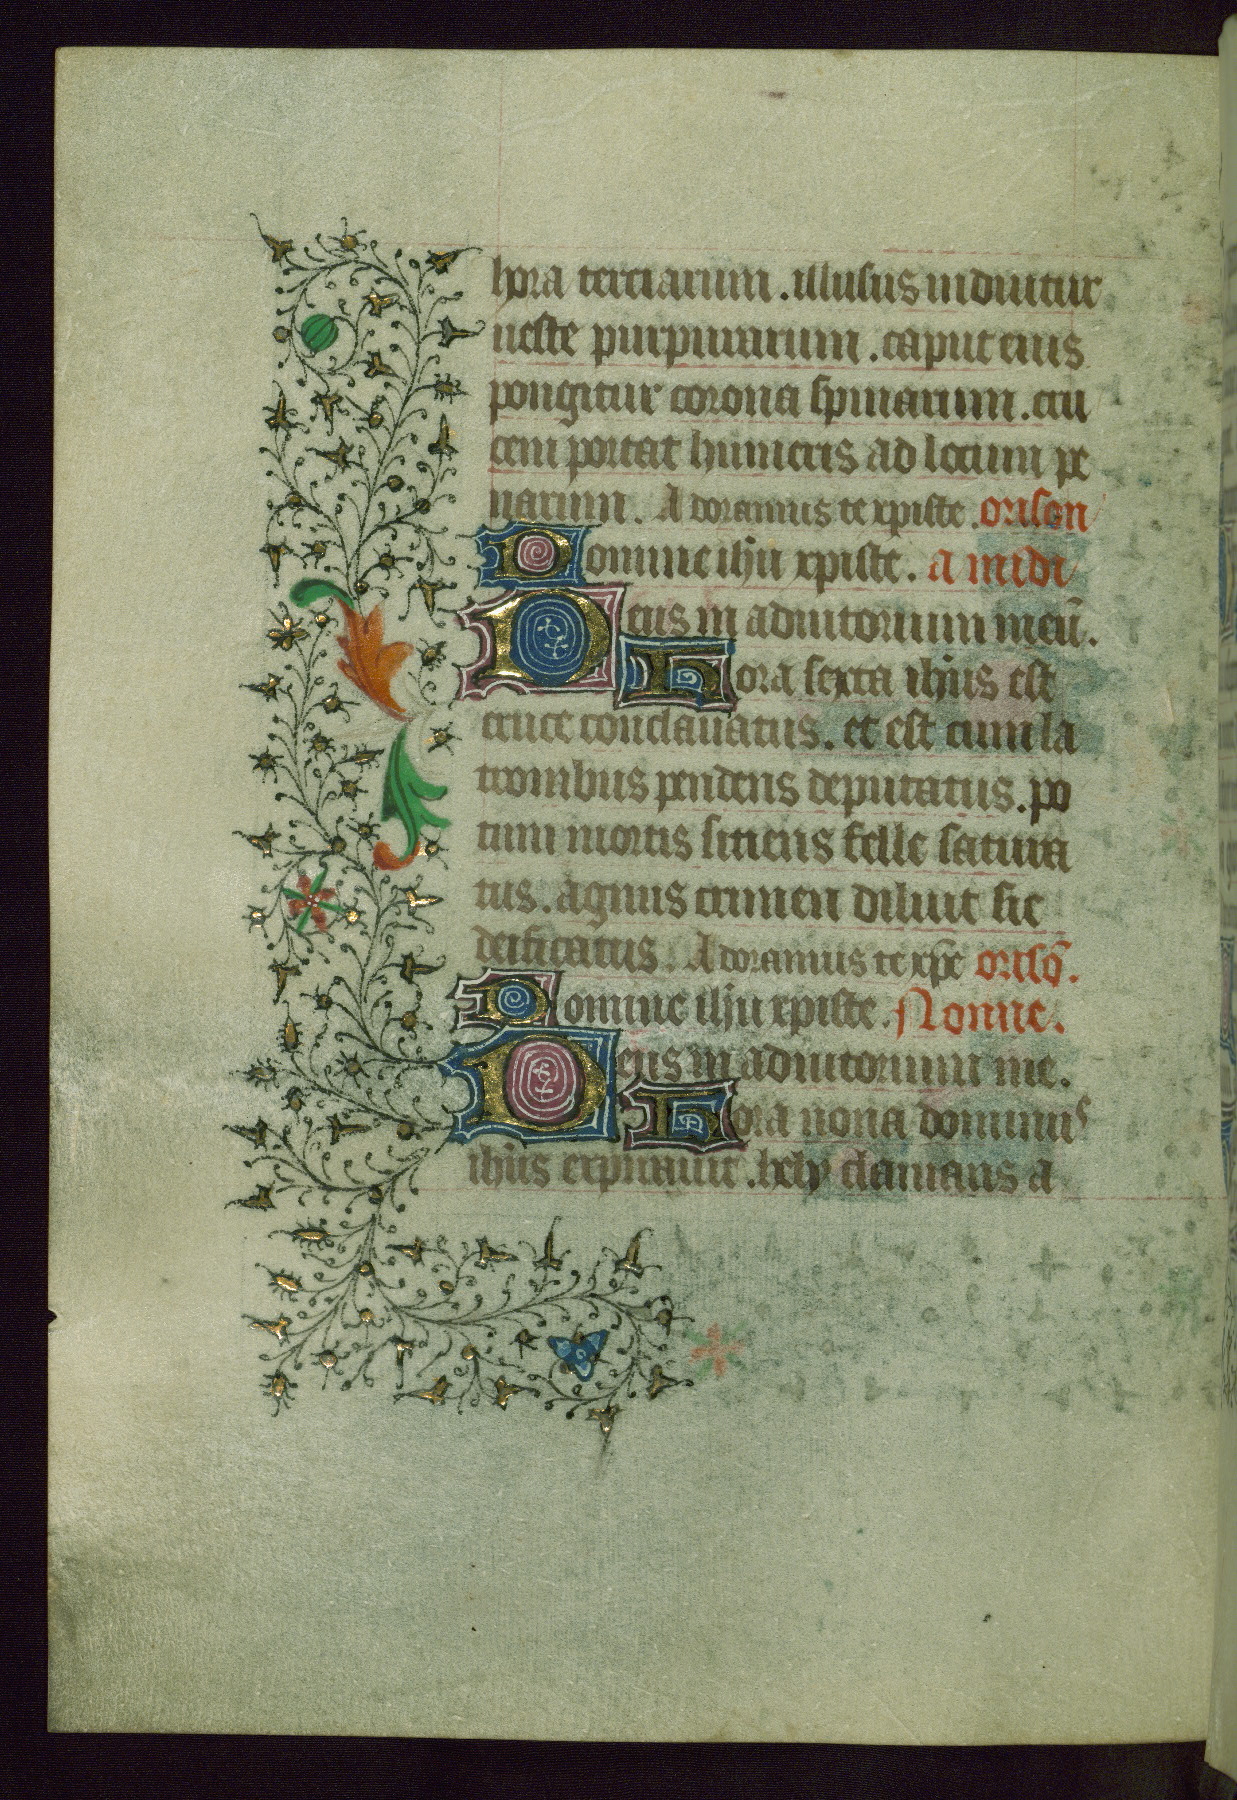 hora terciarum . illusus induitur
ueste purpurarum . caput eius
pongitur corona spinarum . cru
cem portat humeris ad locum pe
narum . Adoramus te xpiste . orison
Domine ihũ xpiste . a midi
Deus in adiutorium meũ .
Hora sexta ihũs est
cruce conclauatus . et est cum la
tronibus pendens deputatus . po
tum mortis sitiens felle satura
tus . agnus crimen diluit sic
deificatus . Adoramus te xp̃e orisõ .
Domine ihũ xpiste . Nonne .
Deus in adiutorium me .
Hora nona dominus
ihũs expirauit . hely clamans a